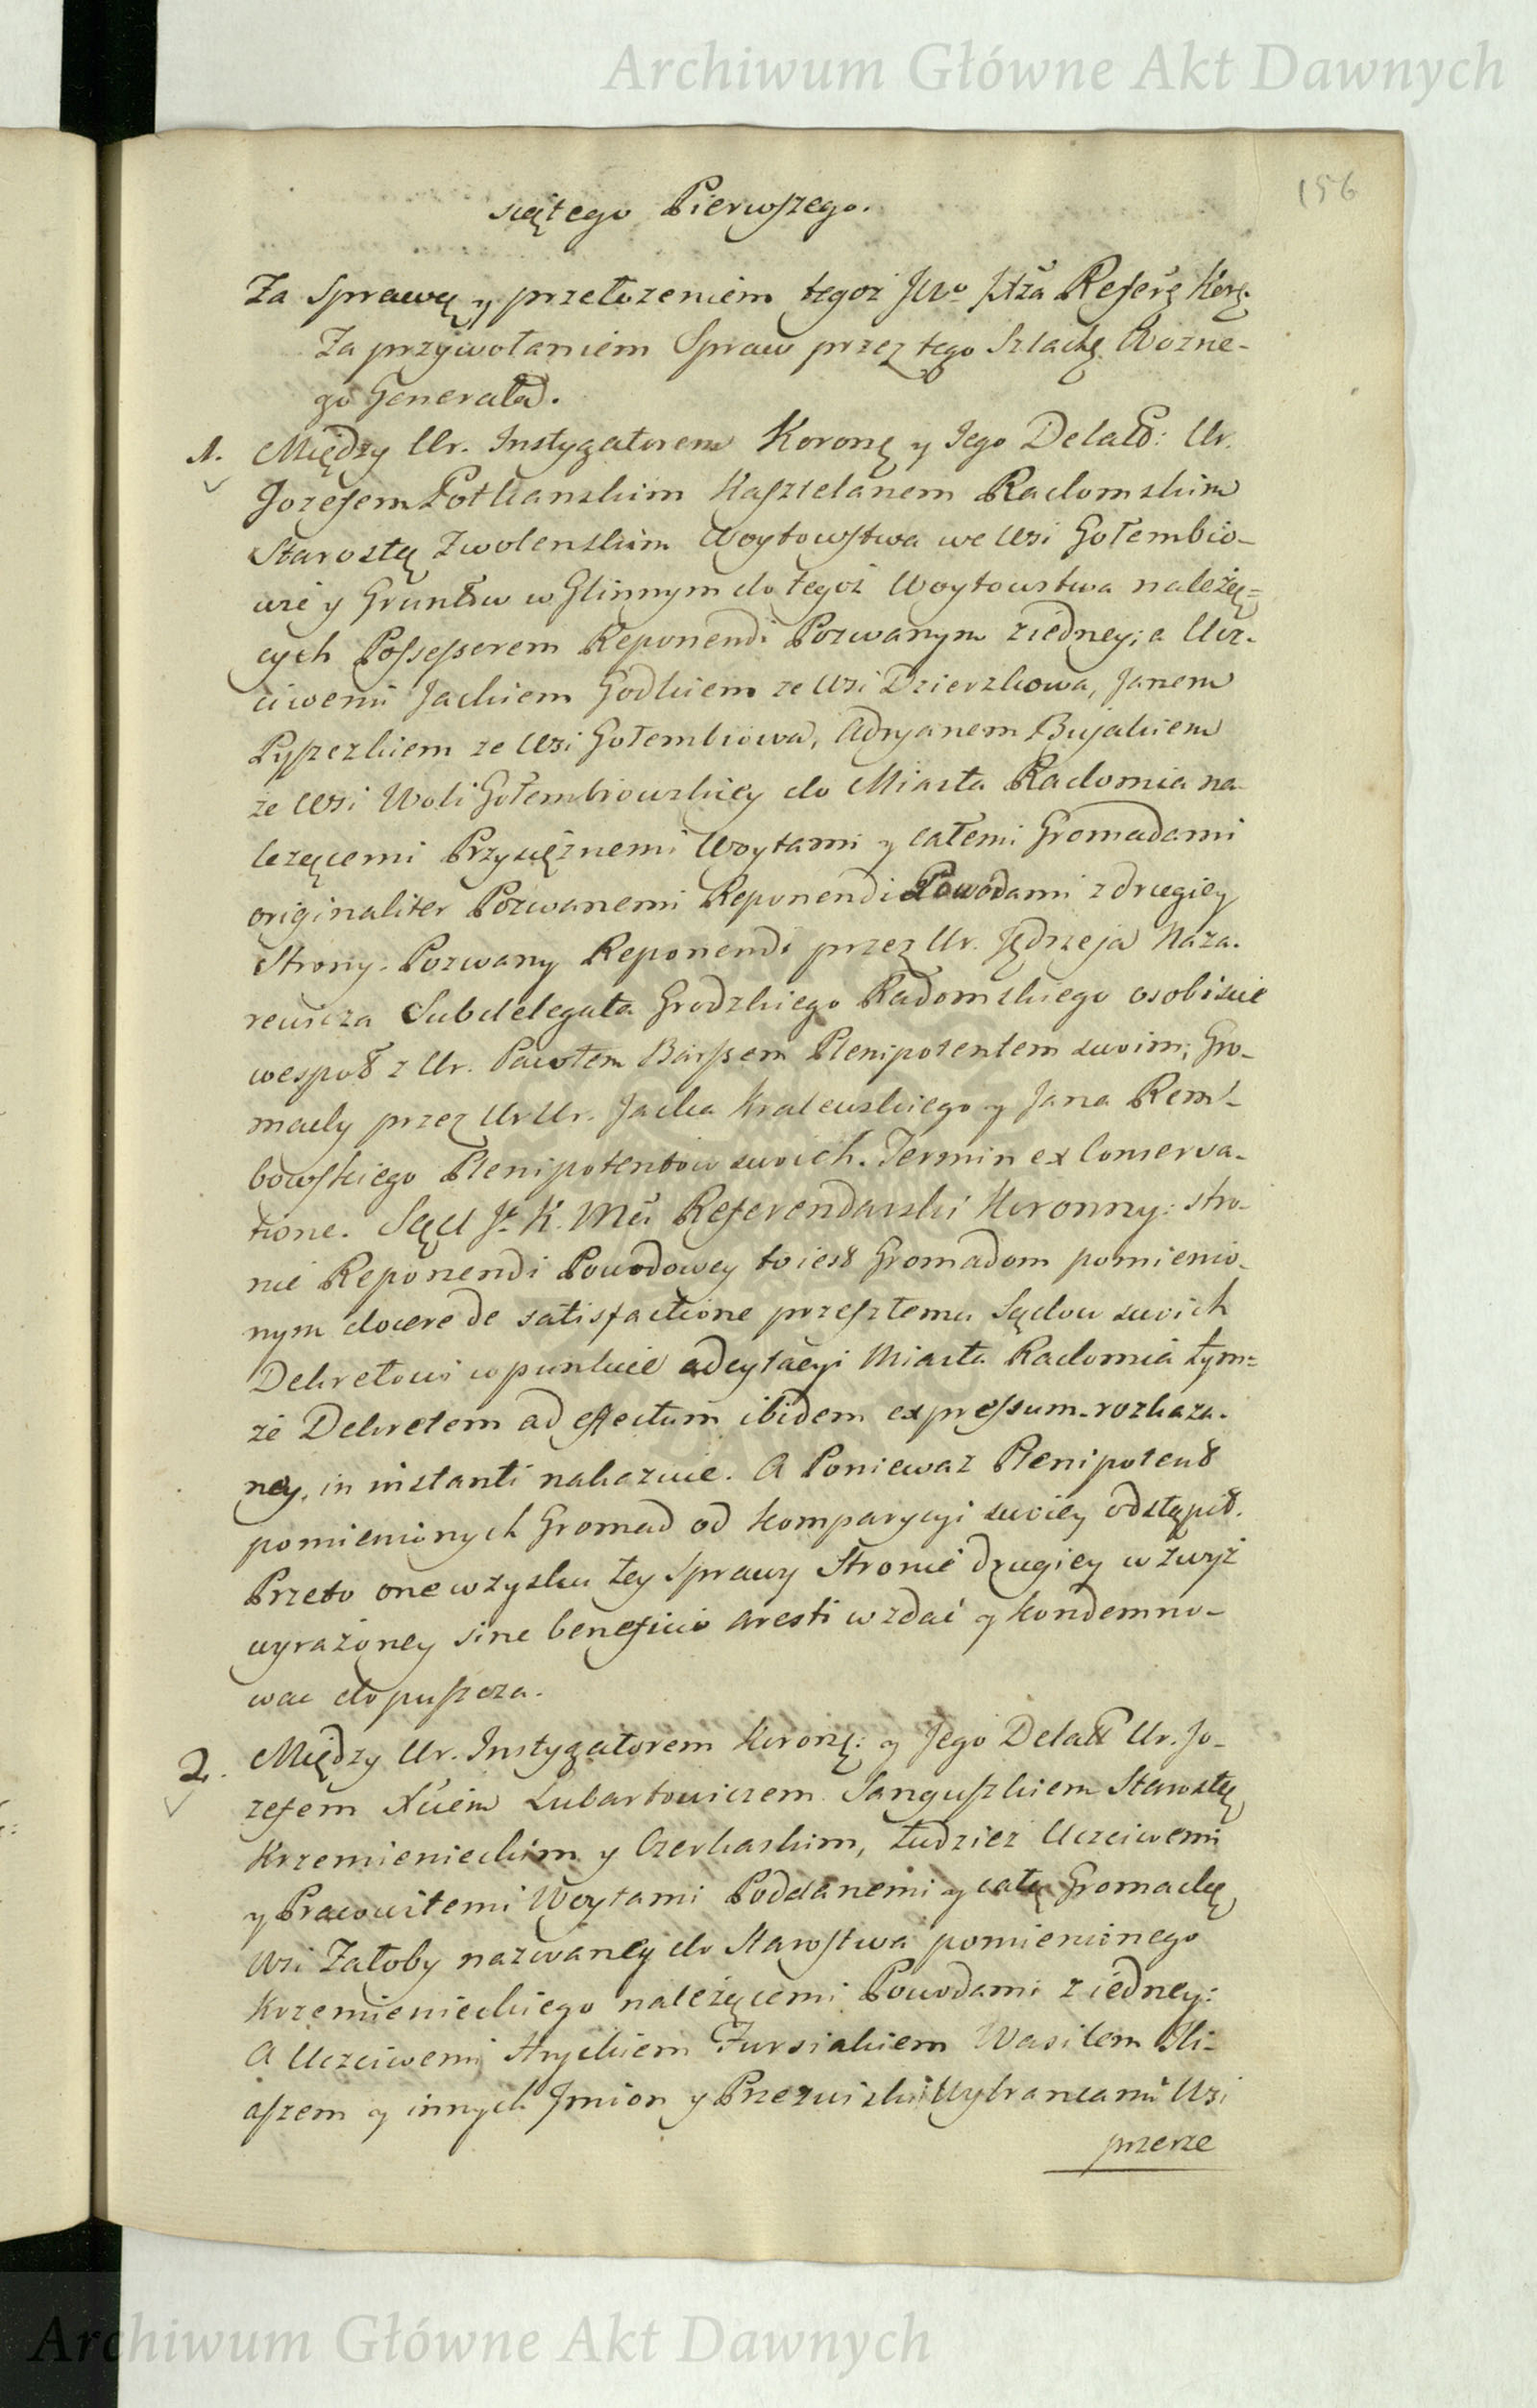 Archiwum Główne Akt Dawnych
156
siątego Pierwszego.
Za Sprawą y przełożeniem tegoż JWo Refer. Kor.
Za przywołaniem Spraw przez tego Szlachę Woźne-
go Generała.
1. Między Ur. Instygatorem Koronę y Jego Delatt: Ur.
Jozefem Potkanskim Kasztelanem Radomskim
Starostą Zwolenskim Woytowstwa we Wsi Gołembio-
wie y Gruntow w Glinnym do tegoż Woytowstwa należą-
cych Possessorem Reponendi Pozwanym z iedney; a Ucz-
ciwemi Jackiem Godkiem ze Wsi Dzierzkowa, Janem
Pyszczkiem ze Wsi Gołembiowa, Adryanem Bujakiem
ze Wsi Woli Gołembiowskiey do Miasta Radomia na-
leżącemi Przysiężnemi Woytami y całemi Gromadami
originaliter Pozwanemi Reponendi Powodami z drugiey
Strony. Pozwany Reponendi przez Ur. Jędrzeja Naza-
rewicza Subdelegata Grodzkiego Radomskiego osobiście
wespoł z Ur. Pawłem Barssem Plenipotentem swoim; Gro-
mady przez UrUr. Jacka Kralewskiego y Jana Rem-
bowskiego Plenipotentow swoich. Termin ex Conserva-
tione. Sąd J. K. Mci Referendarski Koronny: stro-
nie Reponendi Powodowey to iest Gromadom pomienio-
nym docere de satisfactione przeszłemu Sądow swoich
Dekretowi w punkcie adcytacyi Miasta Radomia tym-
że Dekretem ad effectum ibidem expressum rozkaza-
ney, in instanti nakazuie. A Ponieważ Plenipotent
pomienionych Gromad od komparycyi swoiey odstąpił.
Przeto one w zysku tey Sprawy Stronie drugiey w zwyż
wyrażoney sine beneficio aresti wzdać y kondemno-
wac dopuszcza.
2. Między Ur. Instygatorem Koroną: y Jego Delatt Ur. Jo-
zefem Xciem Lubartowiczem Sanguszkiem Starostą
Krzemienieckim y Czerkaskim, tudzież Uczciwemi
y Pracowitemi Woytami Poddanemi y całą Gromadą
Wsi Załoby nazwaney do Starostwa pomienionego
Krzemienieckiego należącemi Powodami z iedney:
A Uczciwemi Hryckiem Fursiakiem Wasilem Ili-
aszem y innych Jmion y Przezwisk Wybrancami Wsi
przerze
Archiwum Główne Akt Dawnych